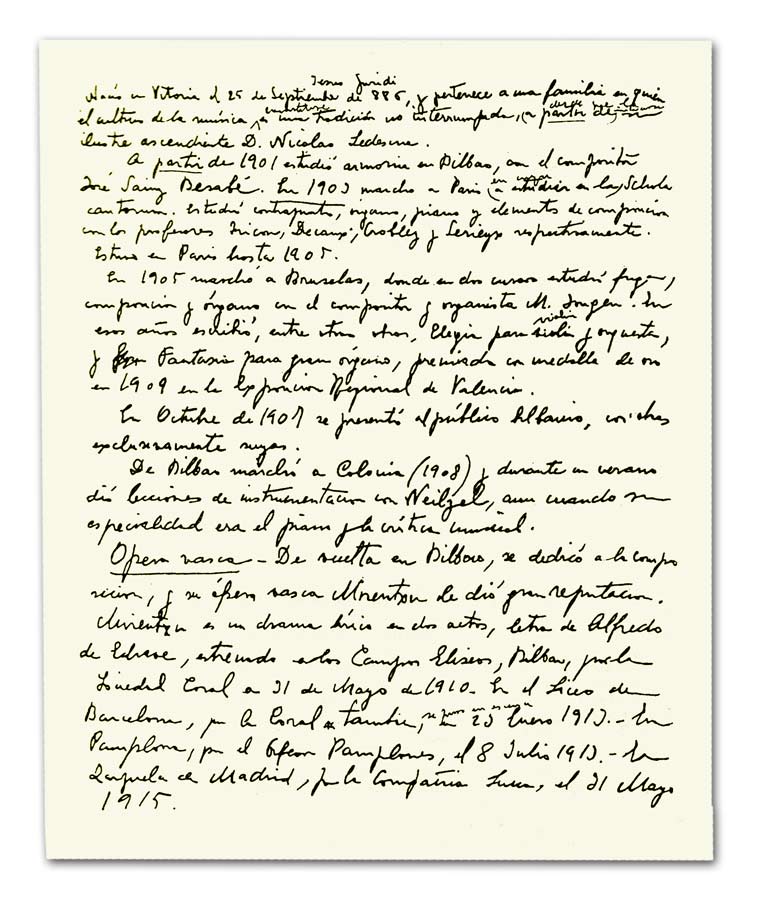 Jesus Guridi
Nació en Vitoria el 25 de Septiembre de 886, y pertenece a una familia en quien
el cultivo de la música, es una tradición no interrumpida, a partir de su
ilustre ascendiente D. Nicolas Ledesma.
A partir de 1901 estudió armonia en Bilbao, con el compositor
José Sainz Basabe. En 1903 marcho a Paris (a estudiar en la) Schola
cantorum. Estudió contrapunto, órgano, piano y elements de composición
con los profesores Decaux, Grovlez y Serieyx respectivamente.
Estuvo en Paris hasta 1905.
En 1905 marchó a Bruselas, donde en dos cursos estudió fuga,
composicion y órgano con el compositor y organista M. Jongen. En
esos años escribió, entre otras obras, Elegia para violin violin y orquesta,
y Fantasia para gran órgano, premiada con medalla de oro
en 1909 en la Exposicion Regional de Valencia.
En Octubre de 1907 se presentó al público bilbaino, con obras
exclusivamente suyas.
De Bilbao marchó a Colonia (1908) y durante un verano
dió lecciones de instrumentacion con Neitzel, aun cuando su
especialidad era el piano y la crítica musical.
Opera vasca - De vuelta en Bilbao, se dedicó a la compo
sicion, y su ópera vasca Mirentxu le dió gran reputacion.
Mirentxu es un drama lírico en dos actos, letra de Alfredo
de Echave, estrenado en los Campos Eliseos, Bilbao, por la
Sociedad Coral a 31 de Mayo de 1910. En el Liceo de
Barcelona, por la Coral tambien, 23 Enero 1913. - En
Pamplona, por el Orfeon Pamplones, el 8 Julio 1913. - En
Zarzuela de Madrid, por la Compañia, el 31 Mayo
1915.